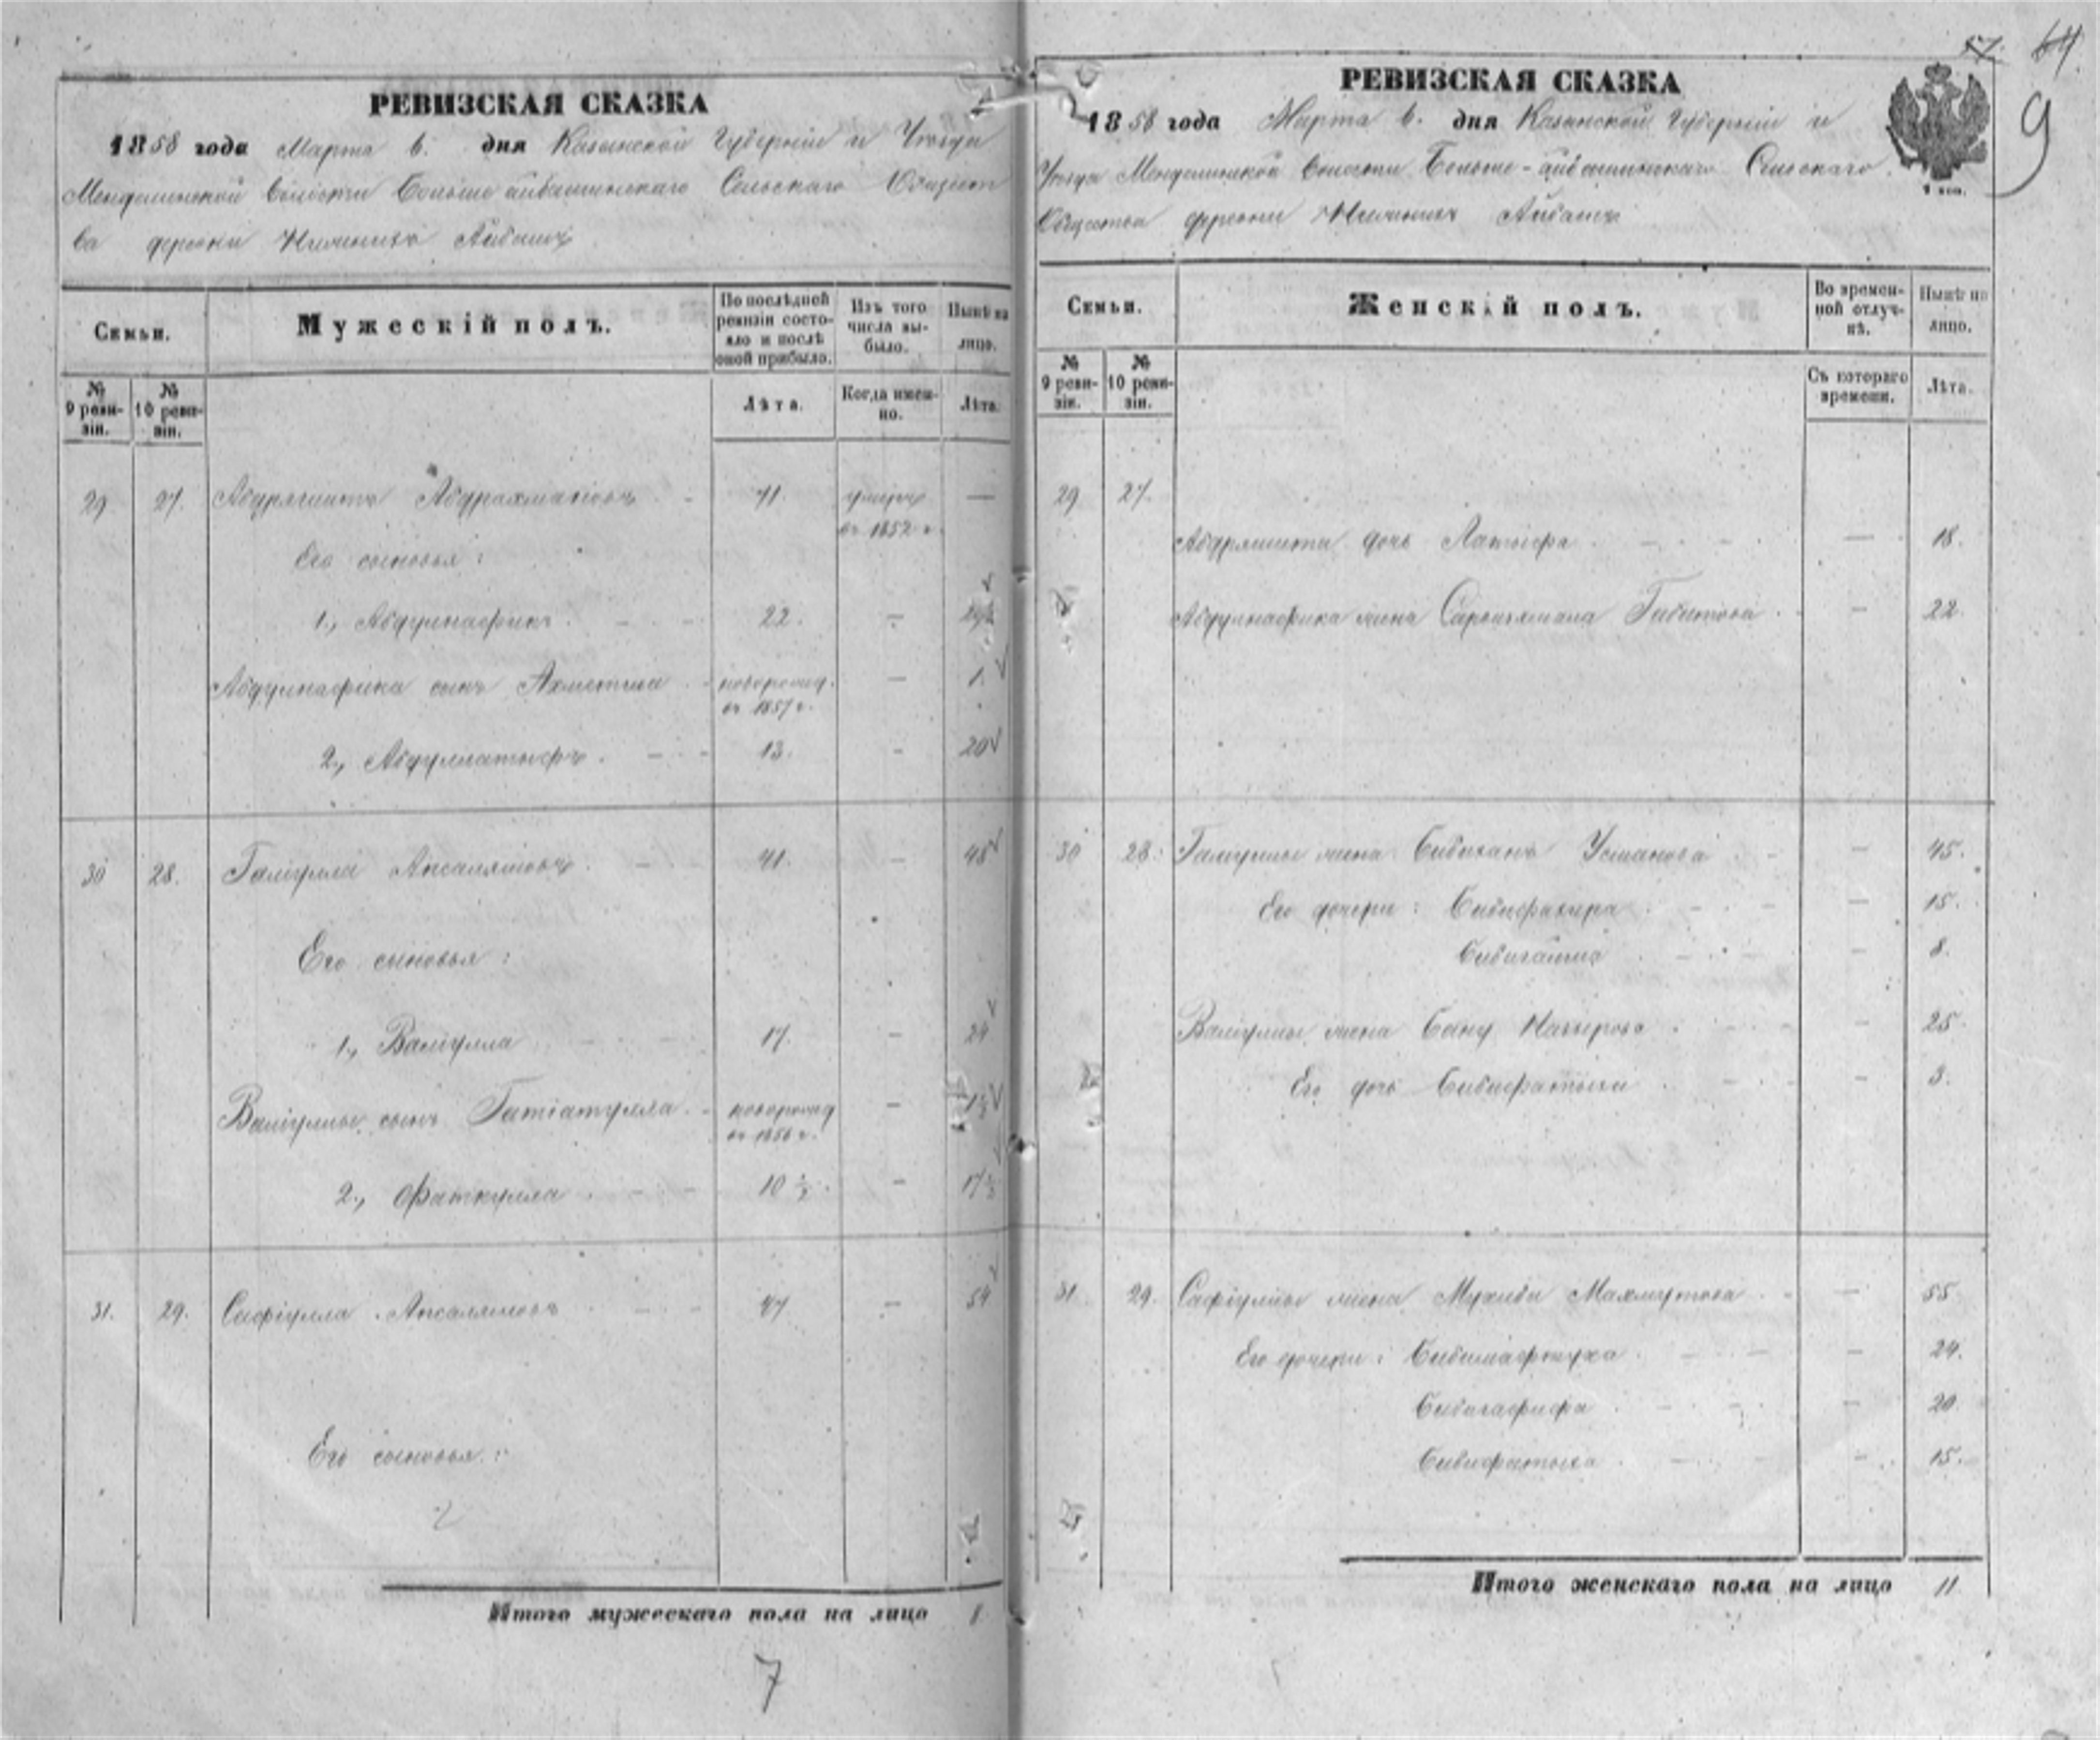 РЕВИЗСКАЯ СКАЗКА
1858 года Марта 6. дня Казанской Губернии и Уезда
Менделинской волости Больше айбашинскаго Сельскаго Общест
ва деревни Нижнихъ Айбашъ
Семьи.
Мужескій полъ.
По послѣдней ревизіи состояло и послѣ оной прибыло.
Изъ того числа выбыло.
Нынѣ на лицо.
№ 9 ревизіи.
№ 10 ревизіи.
Лѣта.
Когда именно.
Лѣта.
29 27. Абдрягиитъ Абдрахмановъ 41. умеръ въ 1852 г. —
Его сыновья:
1., Абдулнафикъ 22. —
Абдулнафика сынъ новорожд. въ 1857 г. — 1.
2., Абдуллатыфъ 13. - 20
30 28. Галиулла Апсалямовъ 41. — 48
Его сыновья:
1., Валіулла 17. — 24
Валіуллы сынъ Гатіатулла новорожд въ 1856 г. — 1½
2., Фаткулла 10½. — 17½
31. 29. Сафіулла Апсалямовъ 47 — 54
Его сыновья:
Итого мужескаго пола на лицо
7
57 64
9
РЕВИЗСКАЯ СКАЗКА
1858 года Марта 6. дня Казанской Губерніи и
Уезда Менделинской волости Больше-айбашинскаго Сельскаго
Общества деревни Нижнихъ Айбашъ
1 коп.
Семьи.
Женскій полъ.
Во временной отлучкѣ.
Нынѣ на лицо.
№ 9 ревизіи.
№ 10 ревизіи.
Съ котораго времени.
Лѣта.
29 27.
дочь Латыифа — 18.
Абдулнафика жена Габитова — 22
30 28. Галиуллы жена Бибихань Усманова — 45.
Его дочери: Бибифахира — 15.
— 8.
Валіуллы жена Бану — 25
Его дочь — 3.
31 29. Сафіуллы жена Махмутова — 55
Его дочери: — 24.
Бибигафифа — 20
Бибифатыха — 15.
Итого женскаго пола на лицо 11